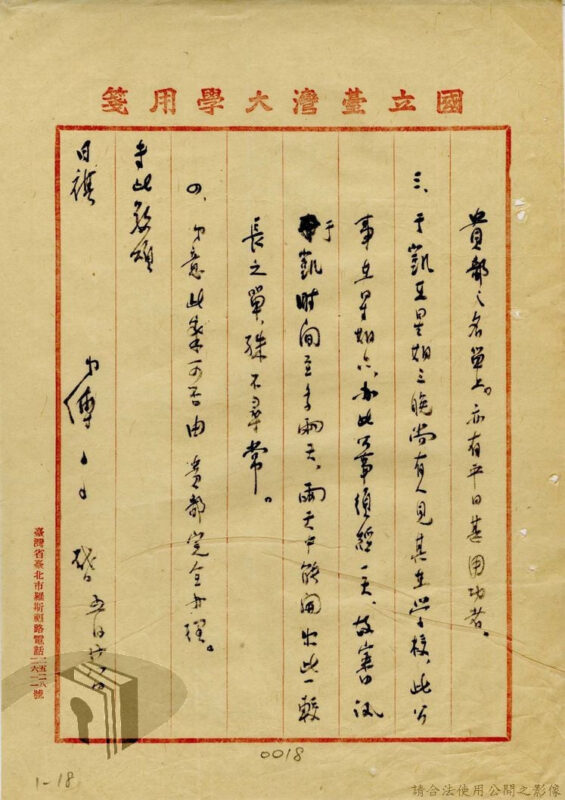 國立臺灣大學用箋
貴部之名單上。亦有平日甚用功者。
三、于凱在星期三晚尚有人見其在學校，此公
事在星期六，辦此公事須經一天、故審訊
于凱時间至多兩天、兩天中能開出此一較
長之單，殊不尋常。
四、弟意此案可否由 貴部完全办理。
專此敬頌
日祺
弟傅 啓 五日
臺灣省臺北市羅斯福路電話
0018
1-18
請合法使用公開之影像